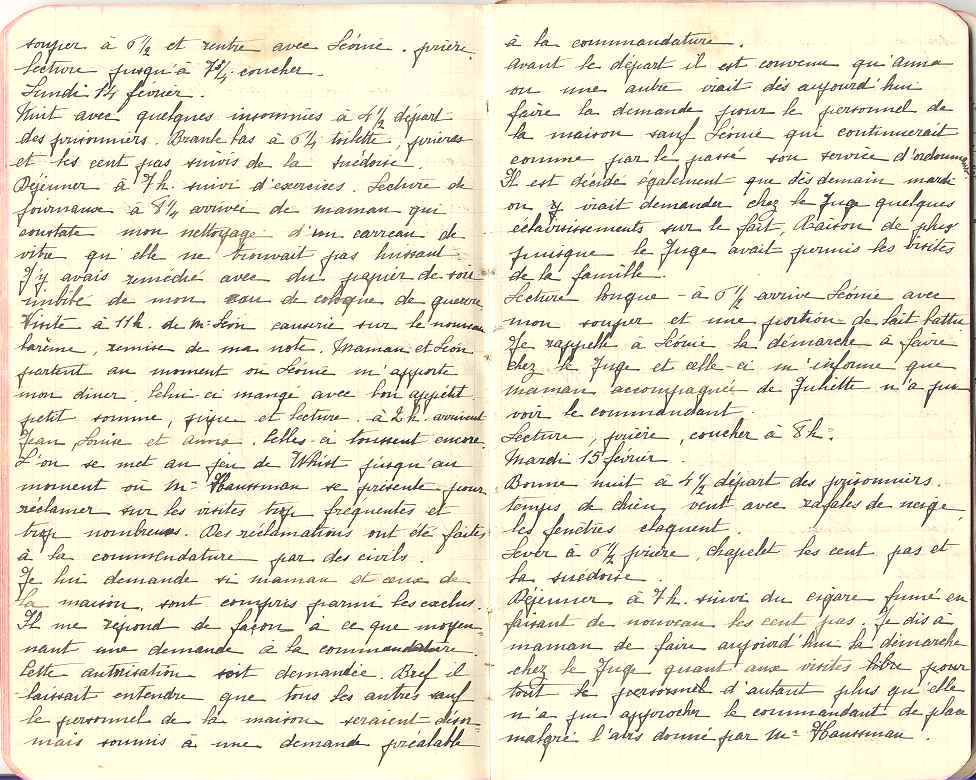 souper à 6 1/2 et rentre avec Léonie. prière.
Lecture jusqu'à 7 3/4. coucher.
Lundi 14 février.
Nuit avec quelques insomnies à 4 1/2 départ
des prisonniers. Branle bas à 6 1/4 toilette, prières
et les cent pas suivis de la suédoise.
Déjeuner à 7h. suivi d'exercices. Lecture de
journaux à 8 1/4 arrivée de maman qui
constate mon nettoyage d'un carreau de
vitre qu'elle ne trouvait pas luisant.
J'y avais remédié avec du papier de soie
imbibé de mon eau de cologne de guerre.
Visite à 11h. de Mr Léon causerie sur le nouveau
barème, remise de ma note. Maman et Léon
partent au moment où Léonie m'apporte
mon diner. Celui-ci mangé avec bon appétit
petit somme, pipe et lecture à 2h. arrivent
Jean, Louise et Anna. Celles-ci toussent encore.
L'on se met au jeu de Whist jusqu'au
moment où Mr Haussman se présente pour
réclamer sur les visites trop fréquentes et
trop nombreuses. Des réclamations ont été faites
à la commendature par des civils.
Je lui demande si maman et ceux de
la maison sont compris parmi les exclus.
Il me répond de façon à ce que moyen-
nant une demande à la commandature.
Cette autorisation soit demandée. Bref il
laissait entendre que tous les autres sauf
le personnel de la maison seraient désor-
mais soumis à une demande préalable
à la commandature.
Avant le départ il est convenu qu'anna
ou une autre irait dès aujourd'hui
faire la demande pour le personnel de
la maison sauf Léonie qui continuerait
comme par le passé son service d'ordonnance
Il est décidé également que dès demain mardi
on y irait demander chez le Juge quelques
éclaircissements sur le fait. Raison de plus
puisque le Juge avait permis les visites
de la famille.
Lecture longue - à 6 1/2 arrive Léonie avec
mon souper et une portion de lait battu
Je rappelle à Léonie la démarche à faire
chez le Juge et celle-ci m'informe que
maman accompagnée de Juliette n'a pu
voir le commandant.
Lecture, prière, coucher à 8h.
Mardi 15 février.
Bonne nuit à 4 1/2 départ des prisonniers.
temps de chien, vent avec rafales de neige,
les fenêtres claquent.
Lever à 6 1/2 prière, chapelet les cent pas et
la suédoise.
Déjeuner à 7h. suivi du cigare fumé en
faisant de nouveau les cent pas. Je dis à
maman de faire aujourd'hui la démarche
chez le Juge quant aux visites libre pour
tout le personnel d'autant plus qu'elle
n'a pu approcher le commandant de place
malgré l'avis donné par Mr Haussman.